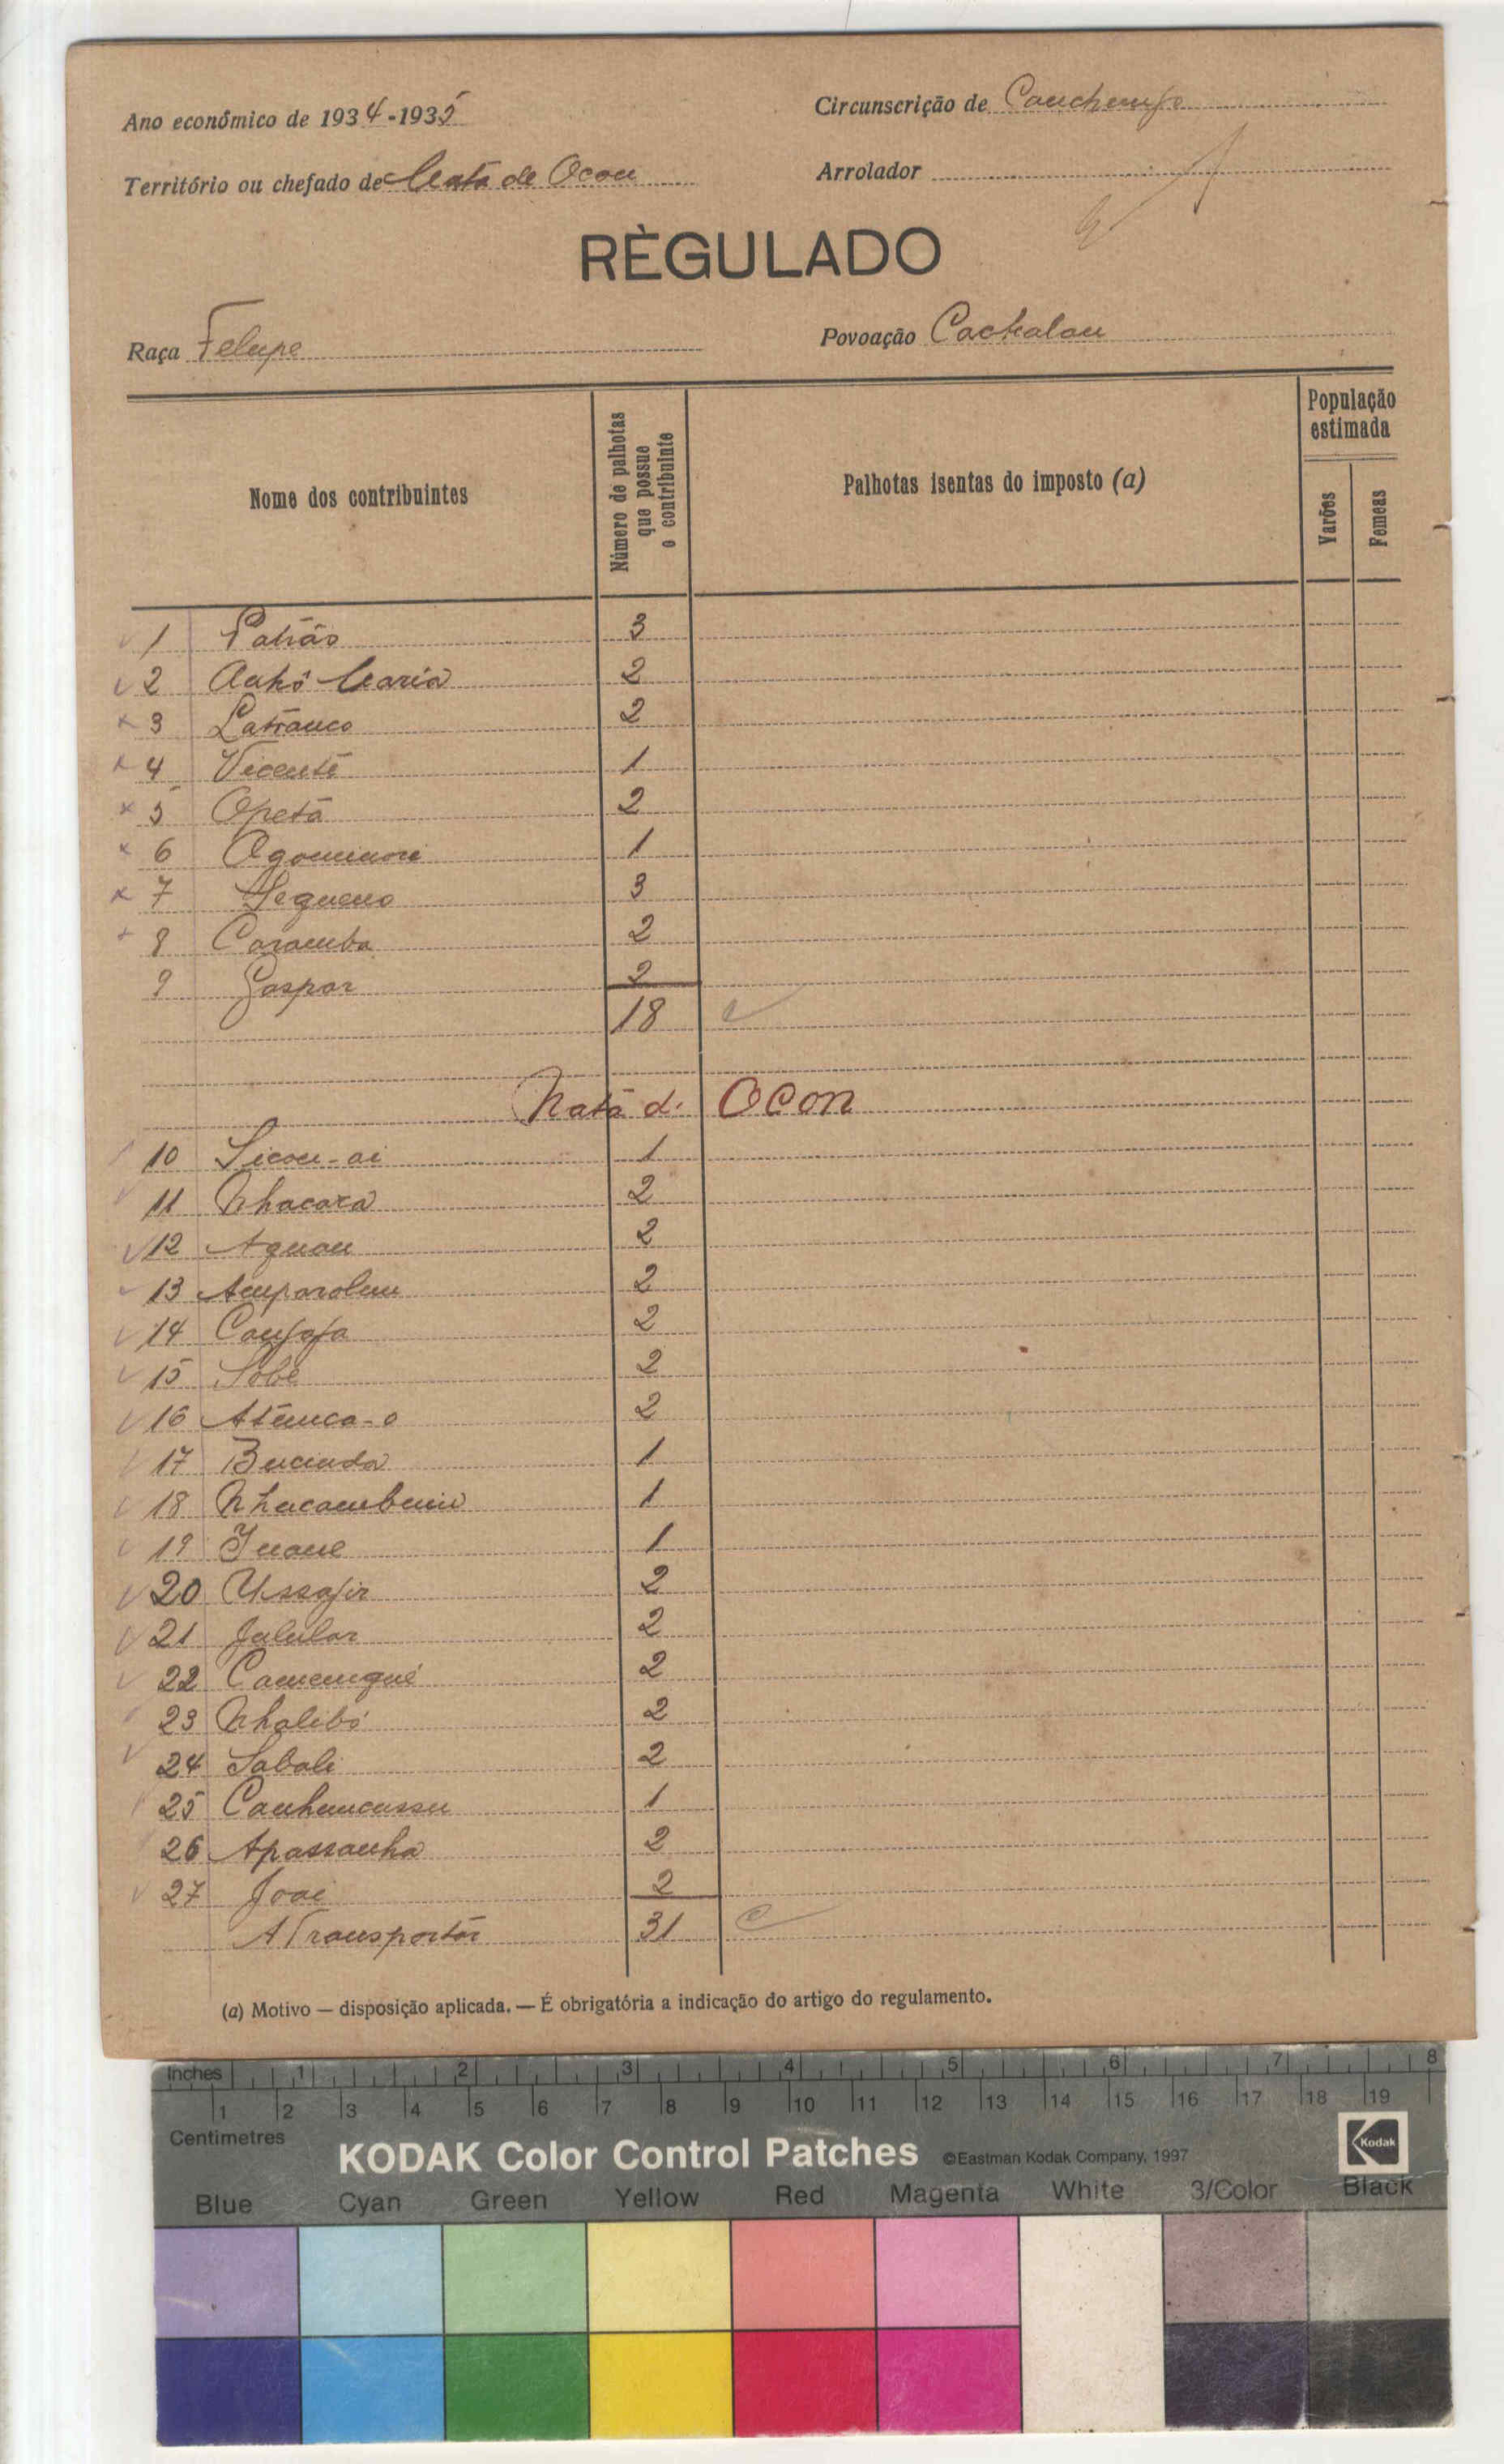 Ano económico de 1934-1935
Circunscrição de Canchungo
Território ou chefado de Mata de Ocon
Arrolador
RÈGULADO
Raça Felupe
Povoação Cachalau
Nome dos contribuintes
Número de palhotas que possue o contribuinte
Palhotas isentas do imposto (a)
População estimada
Varões
Femeas
1 Patrão 3
2 Maria 2
3 Latranco 2
4 Vicente 1
5 Opetá 2
6 1
7 3
8 Caramba 2
9 Gaspar 2
18
Mata de Ocon
10 Sicou-ai 1
11 Nhacara 2
12 Aguau 2
13 Amparolum 2
14 2
15 Sobé 2
16 2
17 Bucinda 1
18 1
19 1
20 Ussofir 2
21 Julular 2
22 2
23 Nhalibó 2
24 Sabali 2
25 1
26 Apassanha 2
27 Joai 2
A Transportar 31
(a) Motivo — disposição aplicada. — É obrigatória a indicação do artigo do regulamento.
Inches 1 2 3 4 5 6 7 8
1 2 3 4 5 6 7 8 9 10 11 12 13 14 15 16 17 18 19
Centimetres
KODAK Color Control Patches ©Eastman Kodak Company, 1997 Kodak
Blue Cyan Green Yellow Red Magenta White 3/Color Black